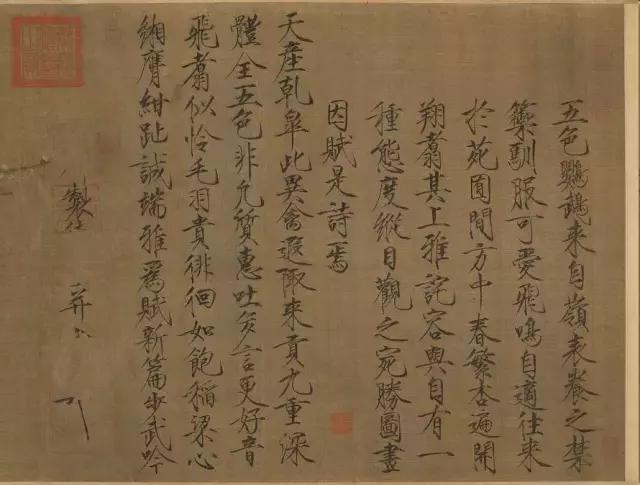 五色鸚鵡来自嶺表養之禁
籞馴服可愛飛鳴自適往来
於苑囿間方中春繁杏遍開
翔翥其上雅詫容與自有一
種態度縱目觀之宛勝圖畫
因賦是詩焉
天產乾皐此異禽遐陬来貢九重深
體全五色非凡質惠吐多言更好音
飛翥似怜毛羽貴徘徊如飽稻粱心
緗膺紺趾誠端雅爲賦新篇步武吟